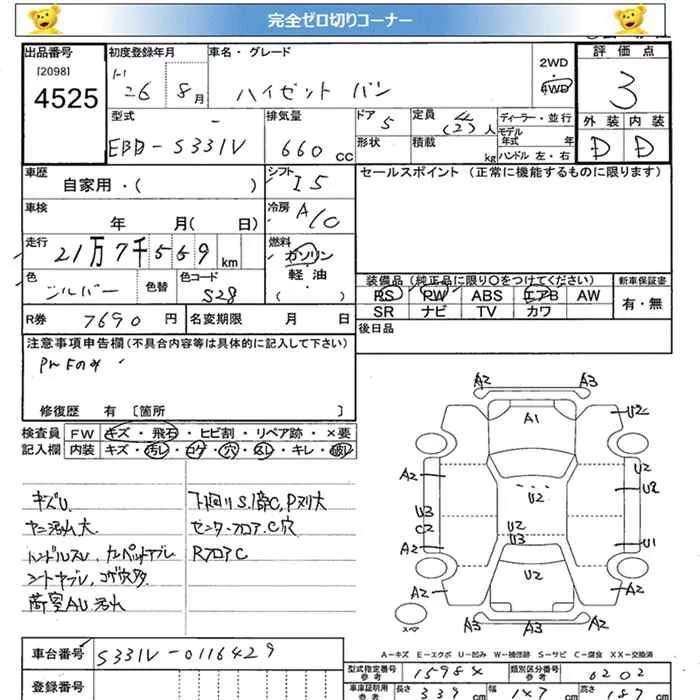 完全ゼロ切りコーナー
出品番号 初度登録年月 車名・グレード 2WD 評価点
[2098] 4525 26 8月 ハイゼット バン 4WD 3
型式 排気量 ドア 定員 ディーラー・並行 外装 内装
EBD-S331V 660 cc 5 (2)人 モデル年式 年 D D
形状 積載 kg ハンドル 左・右
車歴 シフト セールスポイント (正常に機能するものに限ります)
自家用・( ) I5
車検 冷房
年 月( 日) A/C
走行 燃料
21万7千569 km ガソリン
軽油・
( )
色 色替 色コード 装備品 (純正品に限り○をつけてください) 新車保証書
シルバー S28 PS PW ABS エアB AW 有・無
SR ナビ TV カワ
R券 7690 円 名変期限 月 日 後日品
注意事項申告欄(不具合内容等は具体的に記入して下さい)
修復歴 有 [箇所 ]
検査員 FW キズ・飛石・ヒビ割・リペア跡・×要
記入欄 内装 キズ・汚レ・コゲ・穴・スレ・キレ・破レ
キズU 下回りS.1部C,Pヌリ大
ヤニ汚レ大 センターフロアC穴
ハンドルスレ RフロアC
荷室AU汚レ
A2 A3
A1 U2
A2 U2
U2 U2
U3 U2
C2 U3
A2 U1
A2 U2 A2
スペア A2 A3 A3
A-キズ E-エクボ U-凹み W-補修跡 S-サビ C-腐食 XX-交換済
車台番号 S331V-0116429
型式指定番号 参考 15984 類別区分番号 参考 0202
登録番号 車庫証明用 参考 長さ 339 cm 幅 147 cm 高さ 187 cm